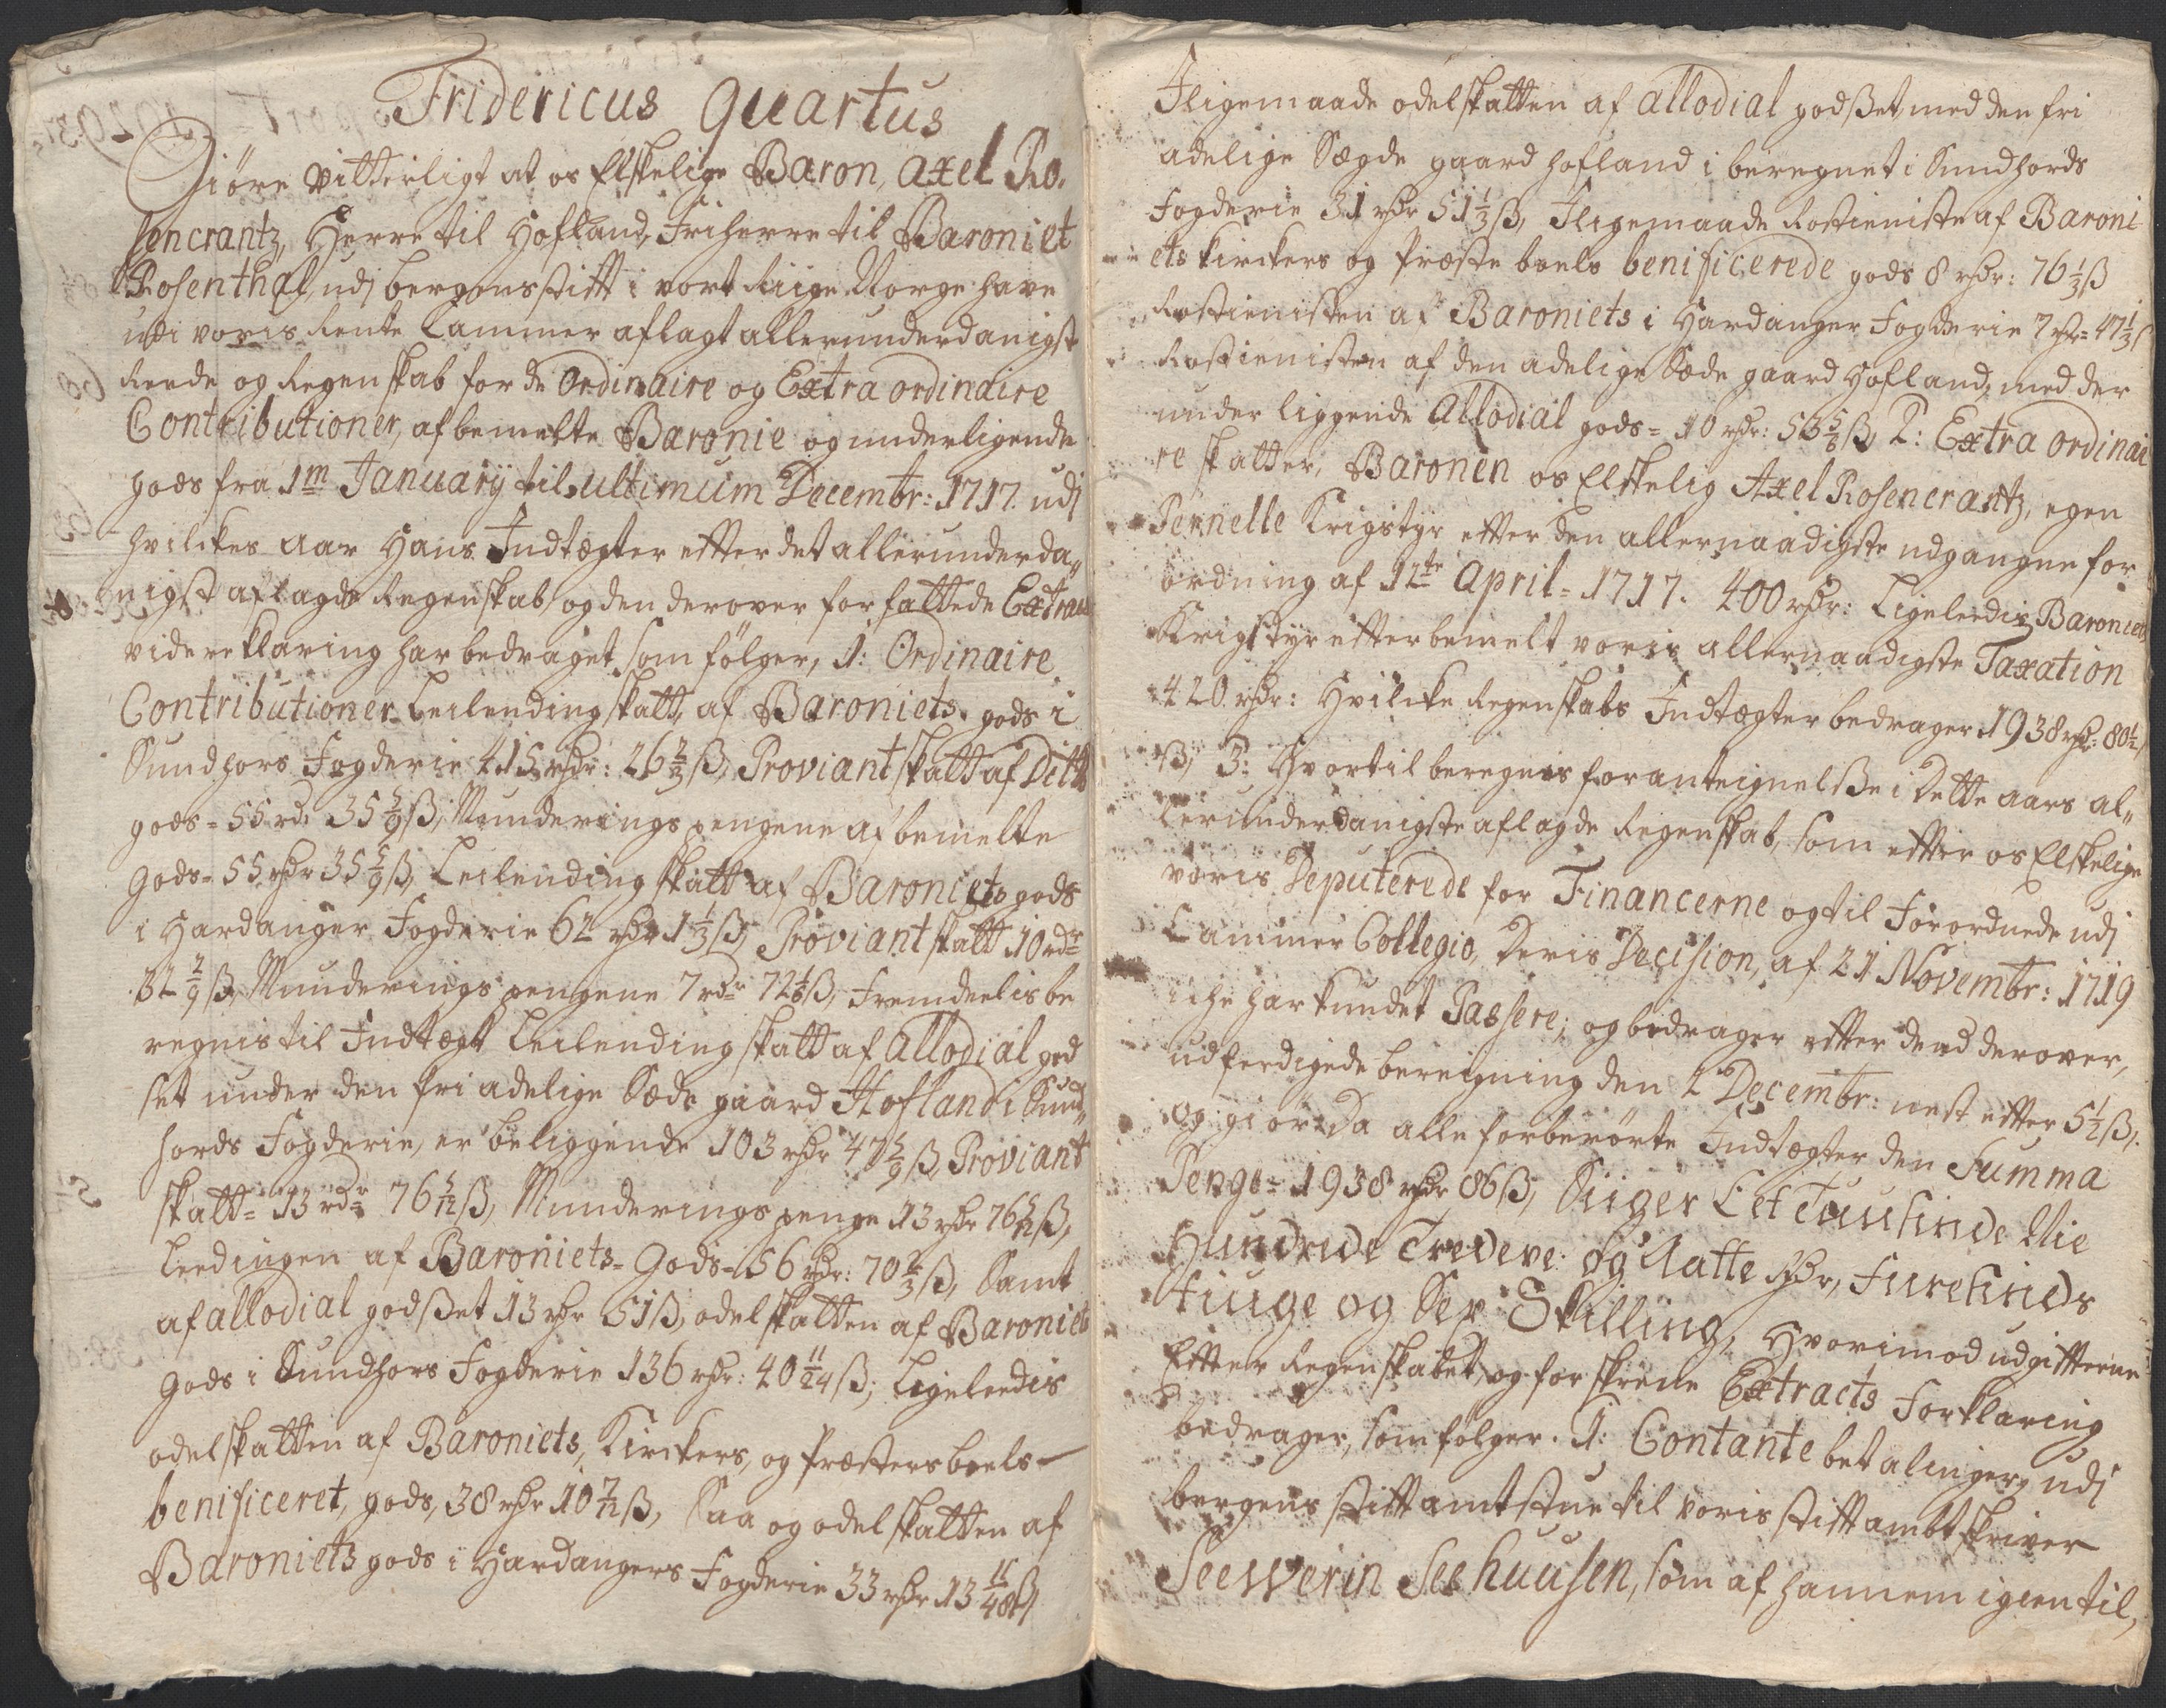 Fridericus Quartus
Giöre Vitterligt at os Elskelige Baron, Axel Ro,
sencrantz, Herre til Hofland, Friherre til Baroniet
Rosenthal, udj bergens stift i vort Riige Norge have
udi voris Rente Cammer aflagt allerunderdanigst
Reede og Regenskab for de Ordinaire og Extra ordinaire
Contributioner, af bemelte Baronie og underligende
gods fra 1m January til ultimum Decembr: 1717. udj
hvilckes aar Hans Indtægter efter det allerunderda„
nigst aflagde Regenskab og den derover forfattede Extract
videre klaring har bedraget som fölger, 1: Ordinaire
Contributioner Leilending skatt, af Baroniets gods i
Sundhors Fogderie 415 rhdr: 26 2/3 ß, Proviant skatt af Ditto
gods = 55 rd. 35 5/9 ß, Munderings pengene af bemelte
Gods = 55 rhdr 35 5/9 ß, Leilending skatt af Baroniets gods
i Hardanger Fogderie 62 rhdr 1 1/3 ß, Proviant skatt 10 rdr
32 2/9 ß, Munderings pengene 7 rdr 72 1/6 ß, Fremdeelis be
regnis til Indtægt Leilending skatt af Allodial god
set under den fri adelige Sæde gaard Hofland i Sund„
hords Fogderie, er beliggende 103 rhdr 47 5/9 ß, Proviant
skatt = 13 rdr 76 5/12 ß, Munderings penge 13 rhdr 76 5/12 ß,
Leedingen af Baroniets = Gods = 56 rhdr: 70 2/3 ß, Samt
af allodial godßet 13 rhdr 51 ß, odelskatten af Baroniets
Gods i Sundhors Fogderie 136 rhdr: 40 11/24 ß; Ligeleedis
odelskatten af Baroniets, Kirckers, og Præstersboels
benificeret, gods, 38 rhdr 10 7/12 ß, Saa og odelskatten af
Baroniets gods i Hardangers Fogderie 33 rhdr 13 11/48 ß
Iligemaade odelskatten af allodial godßet, med den fri
adelige Sægde gaard Hofland i beregnet i Sundhords
Fogderie 31 rhdr 51 1/3 ß, Iligemaade Rostieniste af Baroni
ets Kirckers og Præste boels benificerede gods 8 rhdr: 76 1/3 ß
Rostienisten af Baroniets i Hardanger Fogderie 7 rhdr = 47 1/3 ß
Rostienisten af den adelige Sæde gaard Hofland, med der
under liggende Allodial gods = 10 rhdr: 53 5/6 ß, 2: Extra ordinai
re skatter, Baronen os Elskelig Axel Rosencrantz, egen
Personelle Krigstyr efter den allernaadigste udgangne for
ordning af 12te April = 1717. 400 rhdr: Ligeleedis Baroniets
Krigstyr efter bemelt voris allernaadigste Taxation
420 rhdr: Hvilcke Regenskabs Indtægter bedrager 1938 rhdr: 80 1/2
ß, 3: Hvortil beregnes for anteignelße i Dette aars al„
lerunderdanigste aflagde Regenskab, som efter os Elskelige
voris Deputerede for Financerne og til Forordnede udj
Cammer Collegio, Deris Decision, af 21 Novembr: 1719
iche har kundet Passere; og bedrager efter dend derover,
udferdigede beregning den 2 Decembr: nest efter 5 1/2 ß,
og giör Da alle forberörte Indtægter den Summa
Penge = 1938 rhdr 86 ß, Siiger Eet Tuusinde Nie
Hundrede Tredeve og Aatte rhdr, Fiiresinds
tiuge og Sex Skilling, Hvorimod udgifterne
Efter Regenskabet og forskrevne Extracts Forklaring
bedrager, som fölger. 1: Contante betalinger, udj
bergens stift amtstue til voris stiftambtskriver
Seewerin Seehuusen, som af hannem igien til,